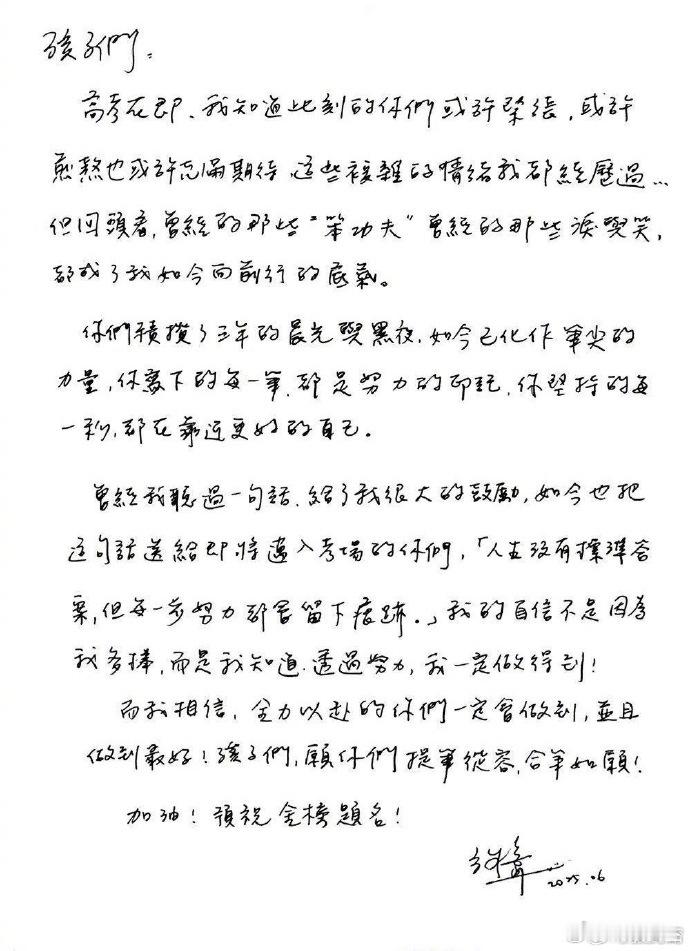 孩子們：
高考在即、我知道此刻的你們或許緊張，或許
煎熬也或許充滿期待、這些複雜的情緒我都經歷過…
但回頭看，曾經的那些“笨功夫”曾經的那些淚與笑，
都成了我如今向前行的底氣。
你們積攢了三年的晨光與黑夜，如今已化作筆尖的
力量，你寫下的每一筆，都是努力的印記，你堅持的每
一秒，都在靠近更好的自己。
曾經我聽過一句話，給了我很大的鼓勵，如今也把
這句話送給即將邁入考場的你們，「人生沒有標準答
案，但每一步努力都會留下痕跡。」我的自信不是因為
我多棒，而是我知道，透過努力，我一定做得到！
而我相信，全力以赴的你們一定會做到，並且
做到最好！孩子們，願你們提筆從容，合筆如願！
加油！預祝金榜題名！
2025.06